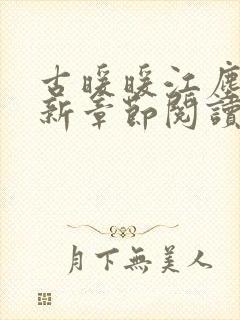 古暖暖江塵
新章節閱讀
月下無美人